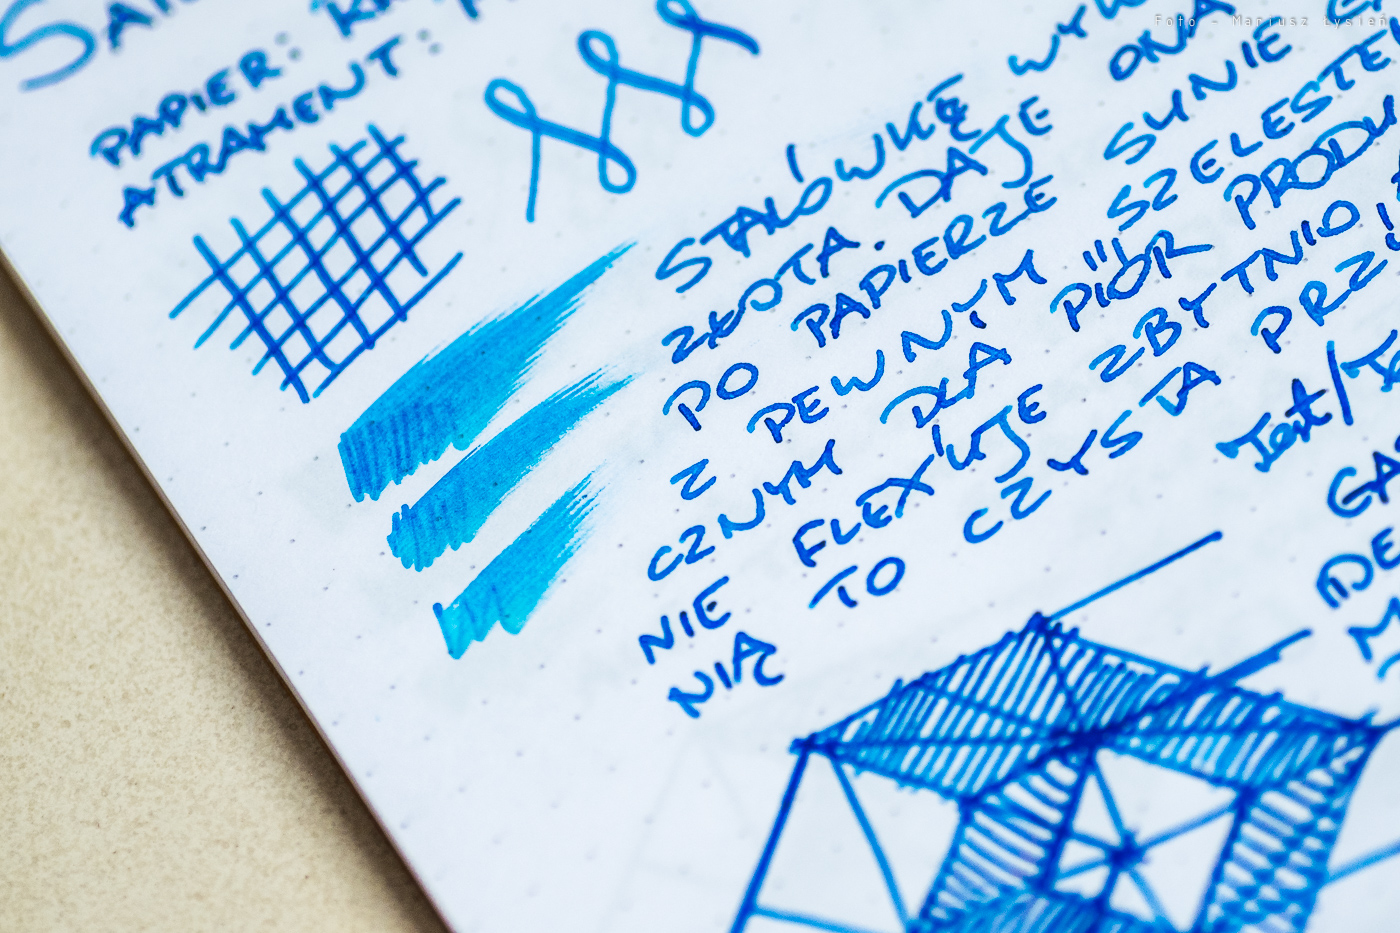 Foto - Mariusz Łysień
PAPIER:
ATRAMENT:
STALÓWKĘ
ZŁOTA. DAJE ONA
PO PAPIERZE SUNIE
Z PEWNYM SZELESTE
CZNYM DLA PIÓR PRODU
NIE FLEXUJE ZBYTNIO
NIĄ TO CZYSTA PRZ
Test/